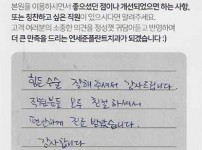 본원을 이용하시면서 좋으셨던 점이나 개선되었으면 하는 사항,
또는 칭찬하고 싶은 직원이 있으시다면 알려주세요.
고객 여러분의 소중한 의견을 정성껏 귀담아듣고 반영하여
더 큰 만족을 드리는 연세준플란트치과가 되겠습니다 :)
힘든 수술 잘해 주셔서 감사드립니다
직원분들 모두 친절하셔서
편안하게 진료 받았습니다
감사합니다